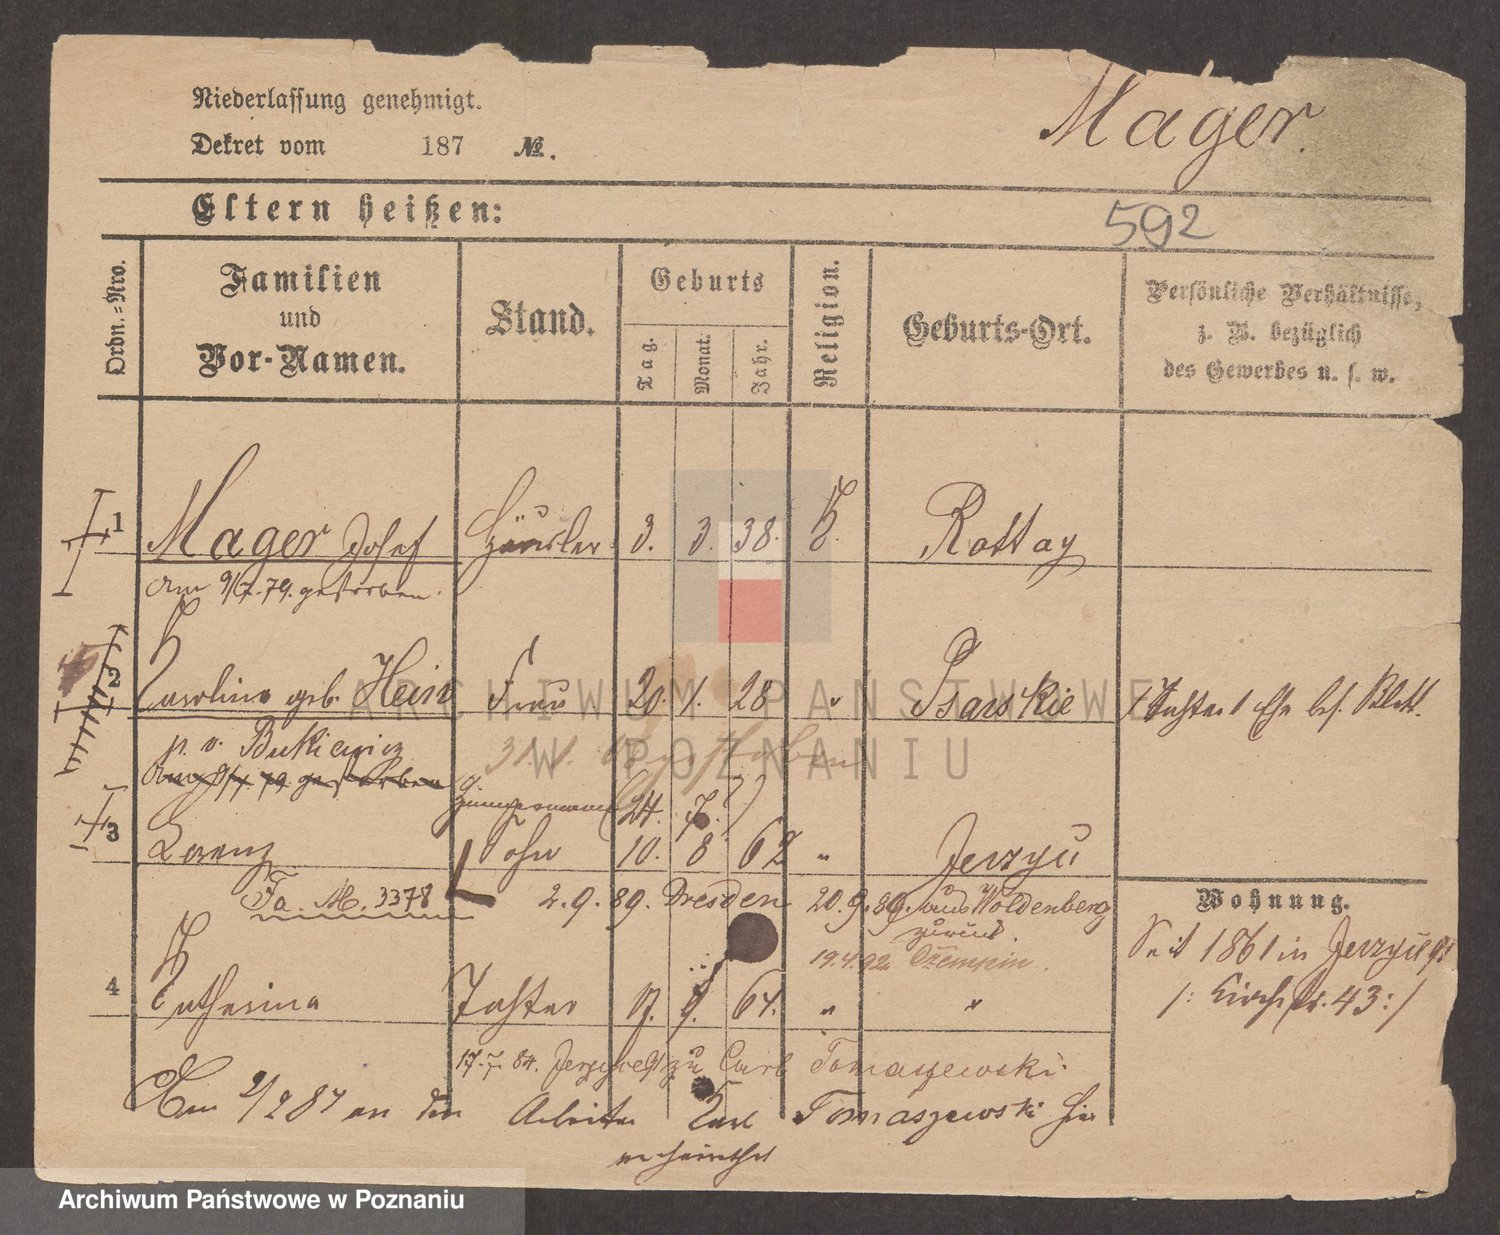 Niederlassung genehmigt.
Dekret vom 187 №.
Mager.
Eltern heißen:
592
Ordn.=Nro.
Familien
und
Vor-Namen.
Stand.
Geburts
Tag.
Monat.
Jahr.
Religion.
Geburts-Ort.
Persönliche Verhältnisse,
z. B. bezüglich
des Gewerbes u. s. w.
1 Mager Josef Häusler 3. 3. 38. K. Rattay
Am 9/7. 79. gestorben.
2 Carolina geb. Hein Frau 20. 1. 28 " Psarskie
p. v. Butkiewicz
Am 9/7 79 gestorben
31. 1. gestorben
(24. 7.?)
3 Lorenz Sohn 10. 8 62 " Jerzyce
Fa. M. 3378 2.9.89. Dresden 20.9.89. aus Woldenberg
zurück.
19.4.92 Czempin.
Wohnung.
Seit 1861 in Jerzyce
/: Kirchstr. 43 :/
4 Catharina Tochter 17. 9. 64. " "
17.7.84. zu Carl Tomaszewski
Am 2/2 87 an den Arbeiter Karl Tomaszewski hier
verheirathet
ARCHIWUM PAŃSTWOWE
W POZNANIU
Archiwum Państwowe w Poznaniu